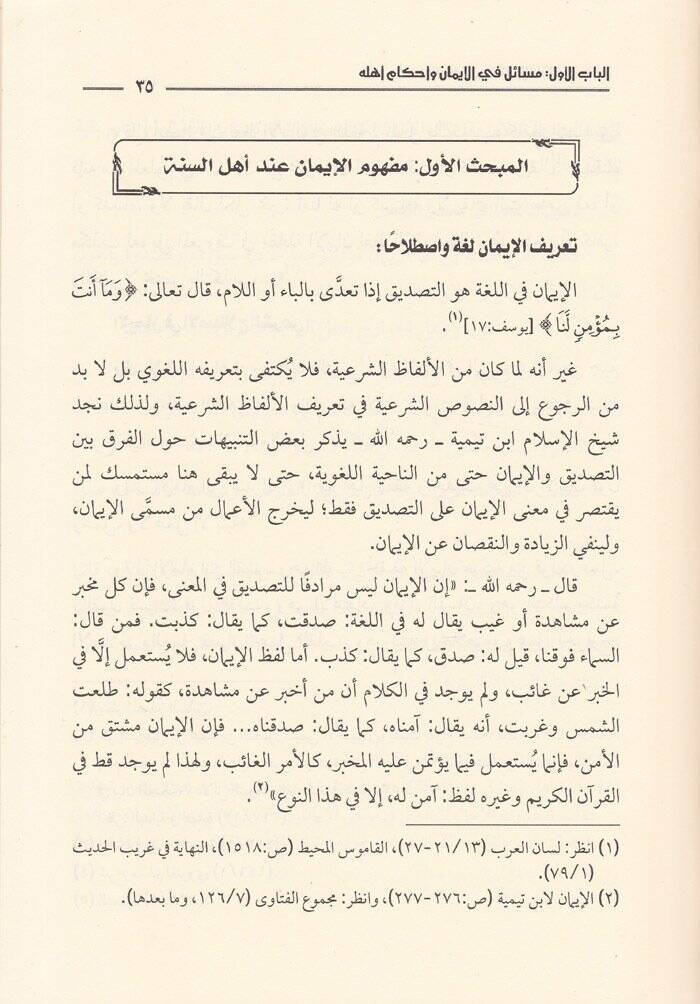 الباب الأول: مسائل في الإيمان وأحكام أهله
٣٥
المبحث الأول: مفهوم الإيمان عند أهل السنة
تعريف الإيمان لغة واصطلاحًا:
الإيمان في اللغة هو التصديق إذا تعدَّى بالباء أو اللام، قال تعالى: ﴿وَمَآ أَنتَ
بِمُؤْمِنٍ لَّنَا﴾ [يوسف:١٧](١).
غير أنه لما كان من الألفاظ الشرعية، فلا يُكتفى بتعريفه اللغوي بل لا بد
من الرجوع إلى النصوص الشرعية في تعريف الألفاظ الشرعية، ولذلك نجد
شيخ الإسلام ابن تيمية ـ رحمه الله ـ يذكر بعض التنبيهات حول الفرق بين
التصديق والإيمان حتى من الناحية اللغوية، حتى لا يبقى هنا مستمسك لمن
يقتصر في معنى الإيمان على التصديق فقط؛ ليخرج الأعمال من مسمَّى الإيمان،
ولينفي الزيادة والنقصان عن الإيمان.
قال ـ رحمه الله ـ: «إن الإيمان ليس مرادفًا للتصديق في المعنى، فإن كل مخبر
عن مشاهدة أو غيب يقال له في اللغة: صدقت، كما يقال: كذبت. فمن قال:
السماء فوقنا، قيل له: صدق، كما يقال: كذب. أما لفظ الإيمان، فلا يُستعمل إلَّا في
الخبر عن غائب، ولم يوجد في الكلام أن من أخبر عن مشاهدة، كقوله: طلعت
الشمس وغربت، أنه يقال: آمناه، كما يقال: صدقناه... فإن الإيمان مشتق من
الأمن، فإنما يُستعمل فيما يؤتمن عليه المخبر، كالأمر الغائب، ولهذا لم يوجد قط في
القرآن الكريم وغيره لفظ: آمن له، إلا في هذا النوع»(٢).
(١) انظر: لسان العرب (٢١/١٣-٢٧)، القاموس المحيط (ص:١٥١٨)، النهاية في غريب الحديث
(٧٩/١).
(٢) الإيمان لابن تيمية (ص:٢٧٦-٢٧٧)، وانظر: مجموع الفتاوى (١٢٦/٧، وما بعدها).